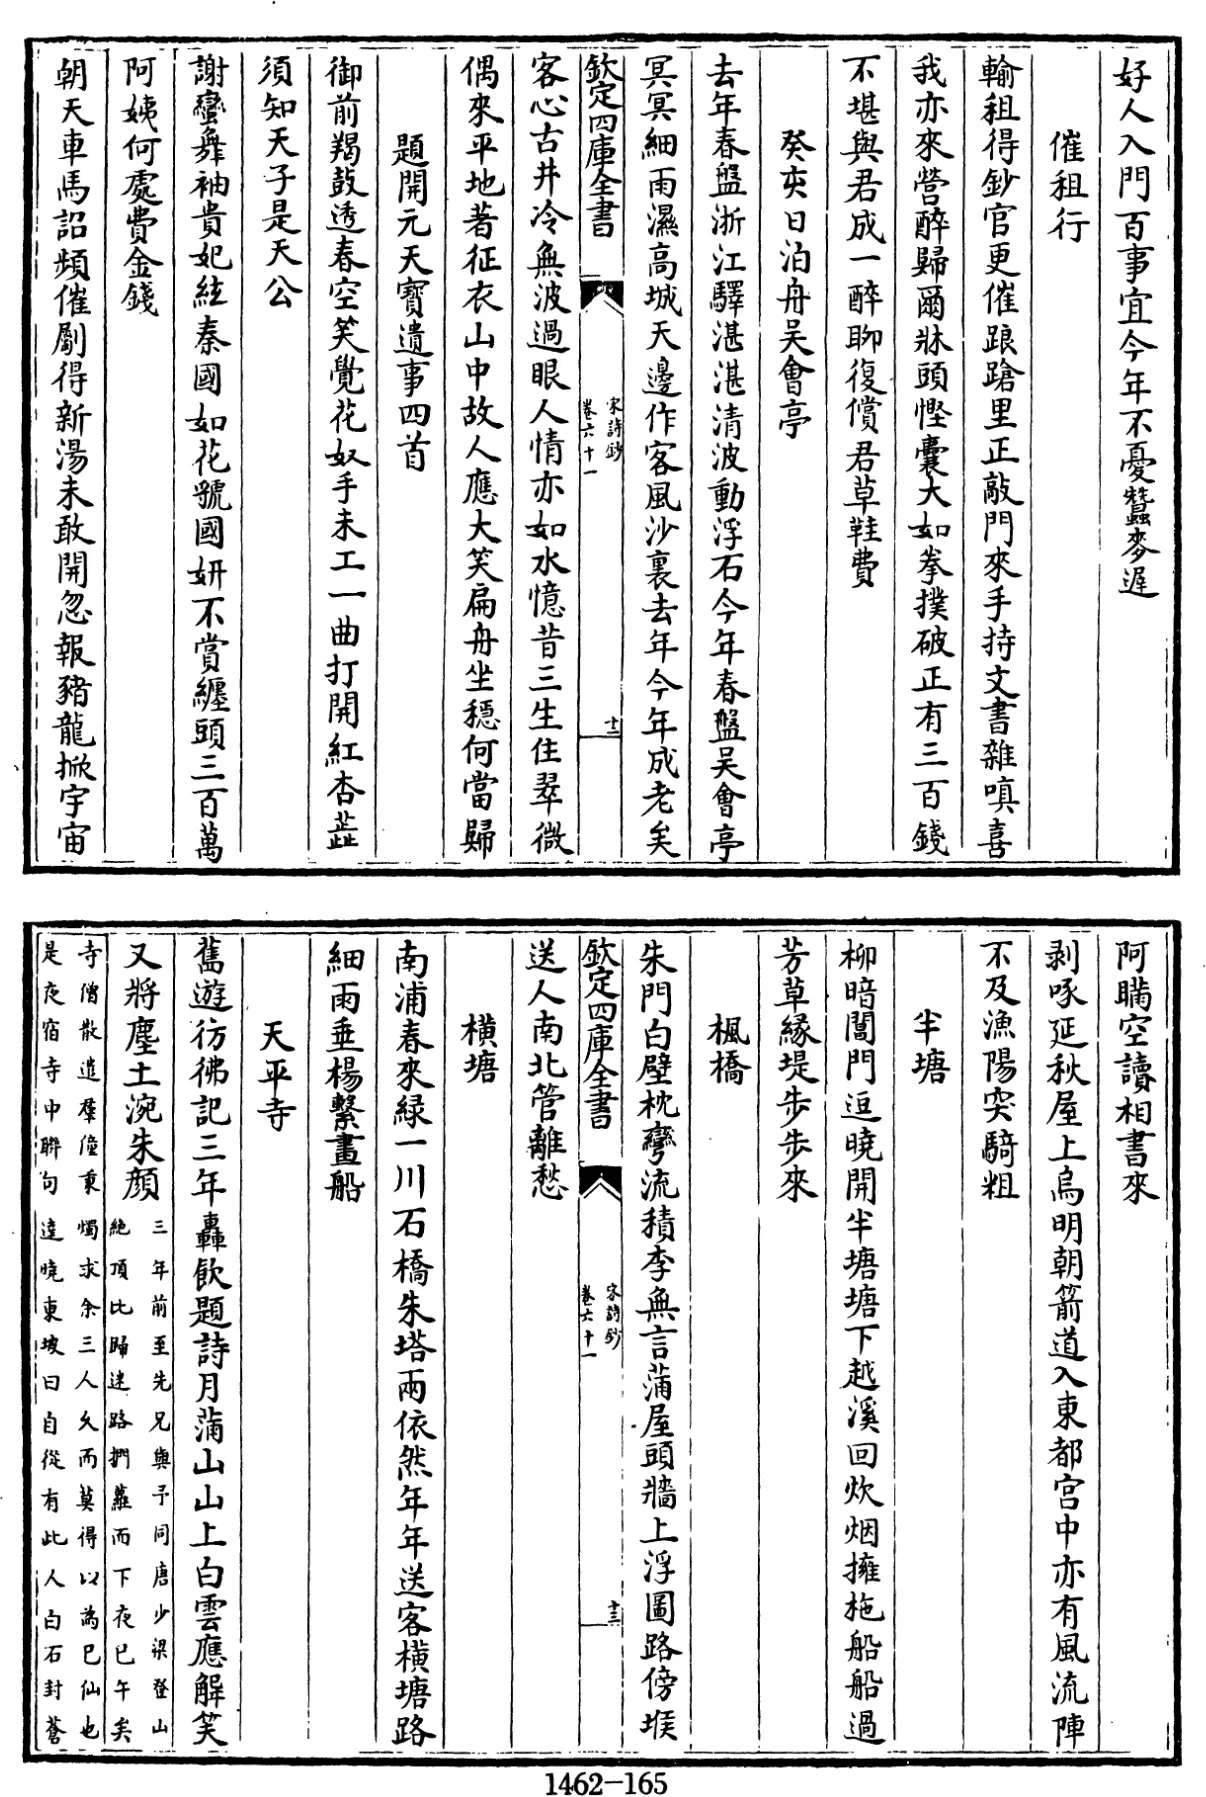 好人入門百事宜今年不憂蠶麥遲
催租行
輸租得鈔官更催踉蹌里正敲門來手持文書雜嗔喜
我亦來營醉歸爾牀頭慳囊大如拳撲破正有三百錢
不堪與君成一醉聊復償君草鞋費
癸亥日泊舟吴會亭
去年春盤浙江驛湛湛清波動浮石今年春盤吴會亭
冥冥細雨濕高城天邊作客風沙裏去年今年成老矣
欽定四庫全書
宋詩鈔
卷六十一
十二
客心古井冷無波過眼人情亦如水憶昔三生住翠微
偶來平地著征衣山中故人應大笑扁舟坐穩何當歸
題開元天寶遺事四首
御前羯鼓透春空笑覺花奴手未工一曲打開紅杏蘂
須知天子是天公
謝蠻舞袖貴妃絃秦國如花虢國妍不賞纏頭三百萬
阿姨何處費金錢
朝天車馬詔頻催劚得新湯未敢開忽報豬龍掀宇宙
阿瞞空讀相書來
剥啄延秋屋上烏明朝箭道入東都宫中亦有風流陣
不及漁陽突騎粗
半塘
柳暗閶門逗曉開半塘塘下越溪回炊烟擁柂船船過
芳草緣堤步步來
楓橋
朱門白壁枕彎流積李無言蒲屋頭牆上浮圖路傍堠
欽定四庫全書
宋詩鈔
卷六十一
十三
送人南北管離愁
横塘
南浦春來緑一川石橋朱塔兩依然年年送客横塘路
細雨垂楊繫畫船
天平寺
舊遊彷彿記三年轟飲題詩月蒲山山上白雲應解笑
又將塵土涴朱顔
三年前至先兄與予同唐少梁登山
絶頂比歸迷路捫蘿而下夜已午矣
寺僧散遣羣僮秉燭求余三人久而莫得以為已仙也
是夜宿寺中聯句達曉東坡曰自從有此人白石封蒼
1462—165